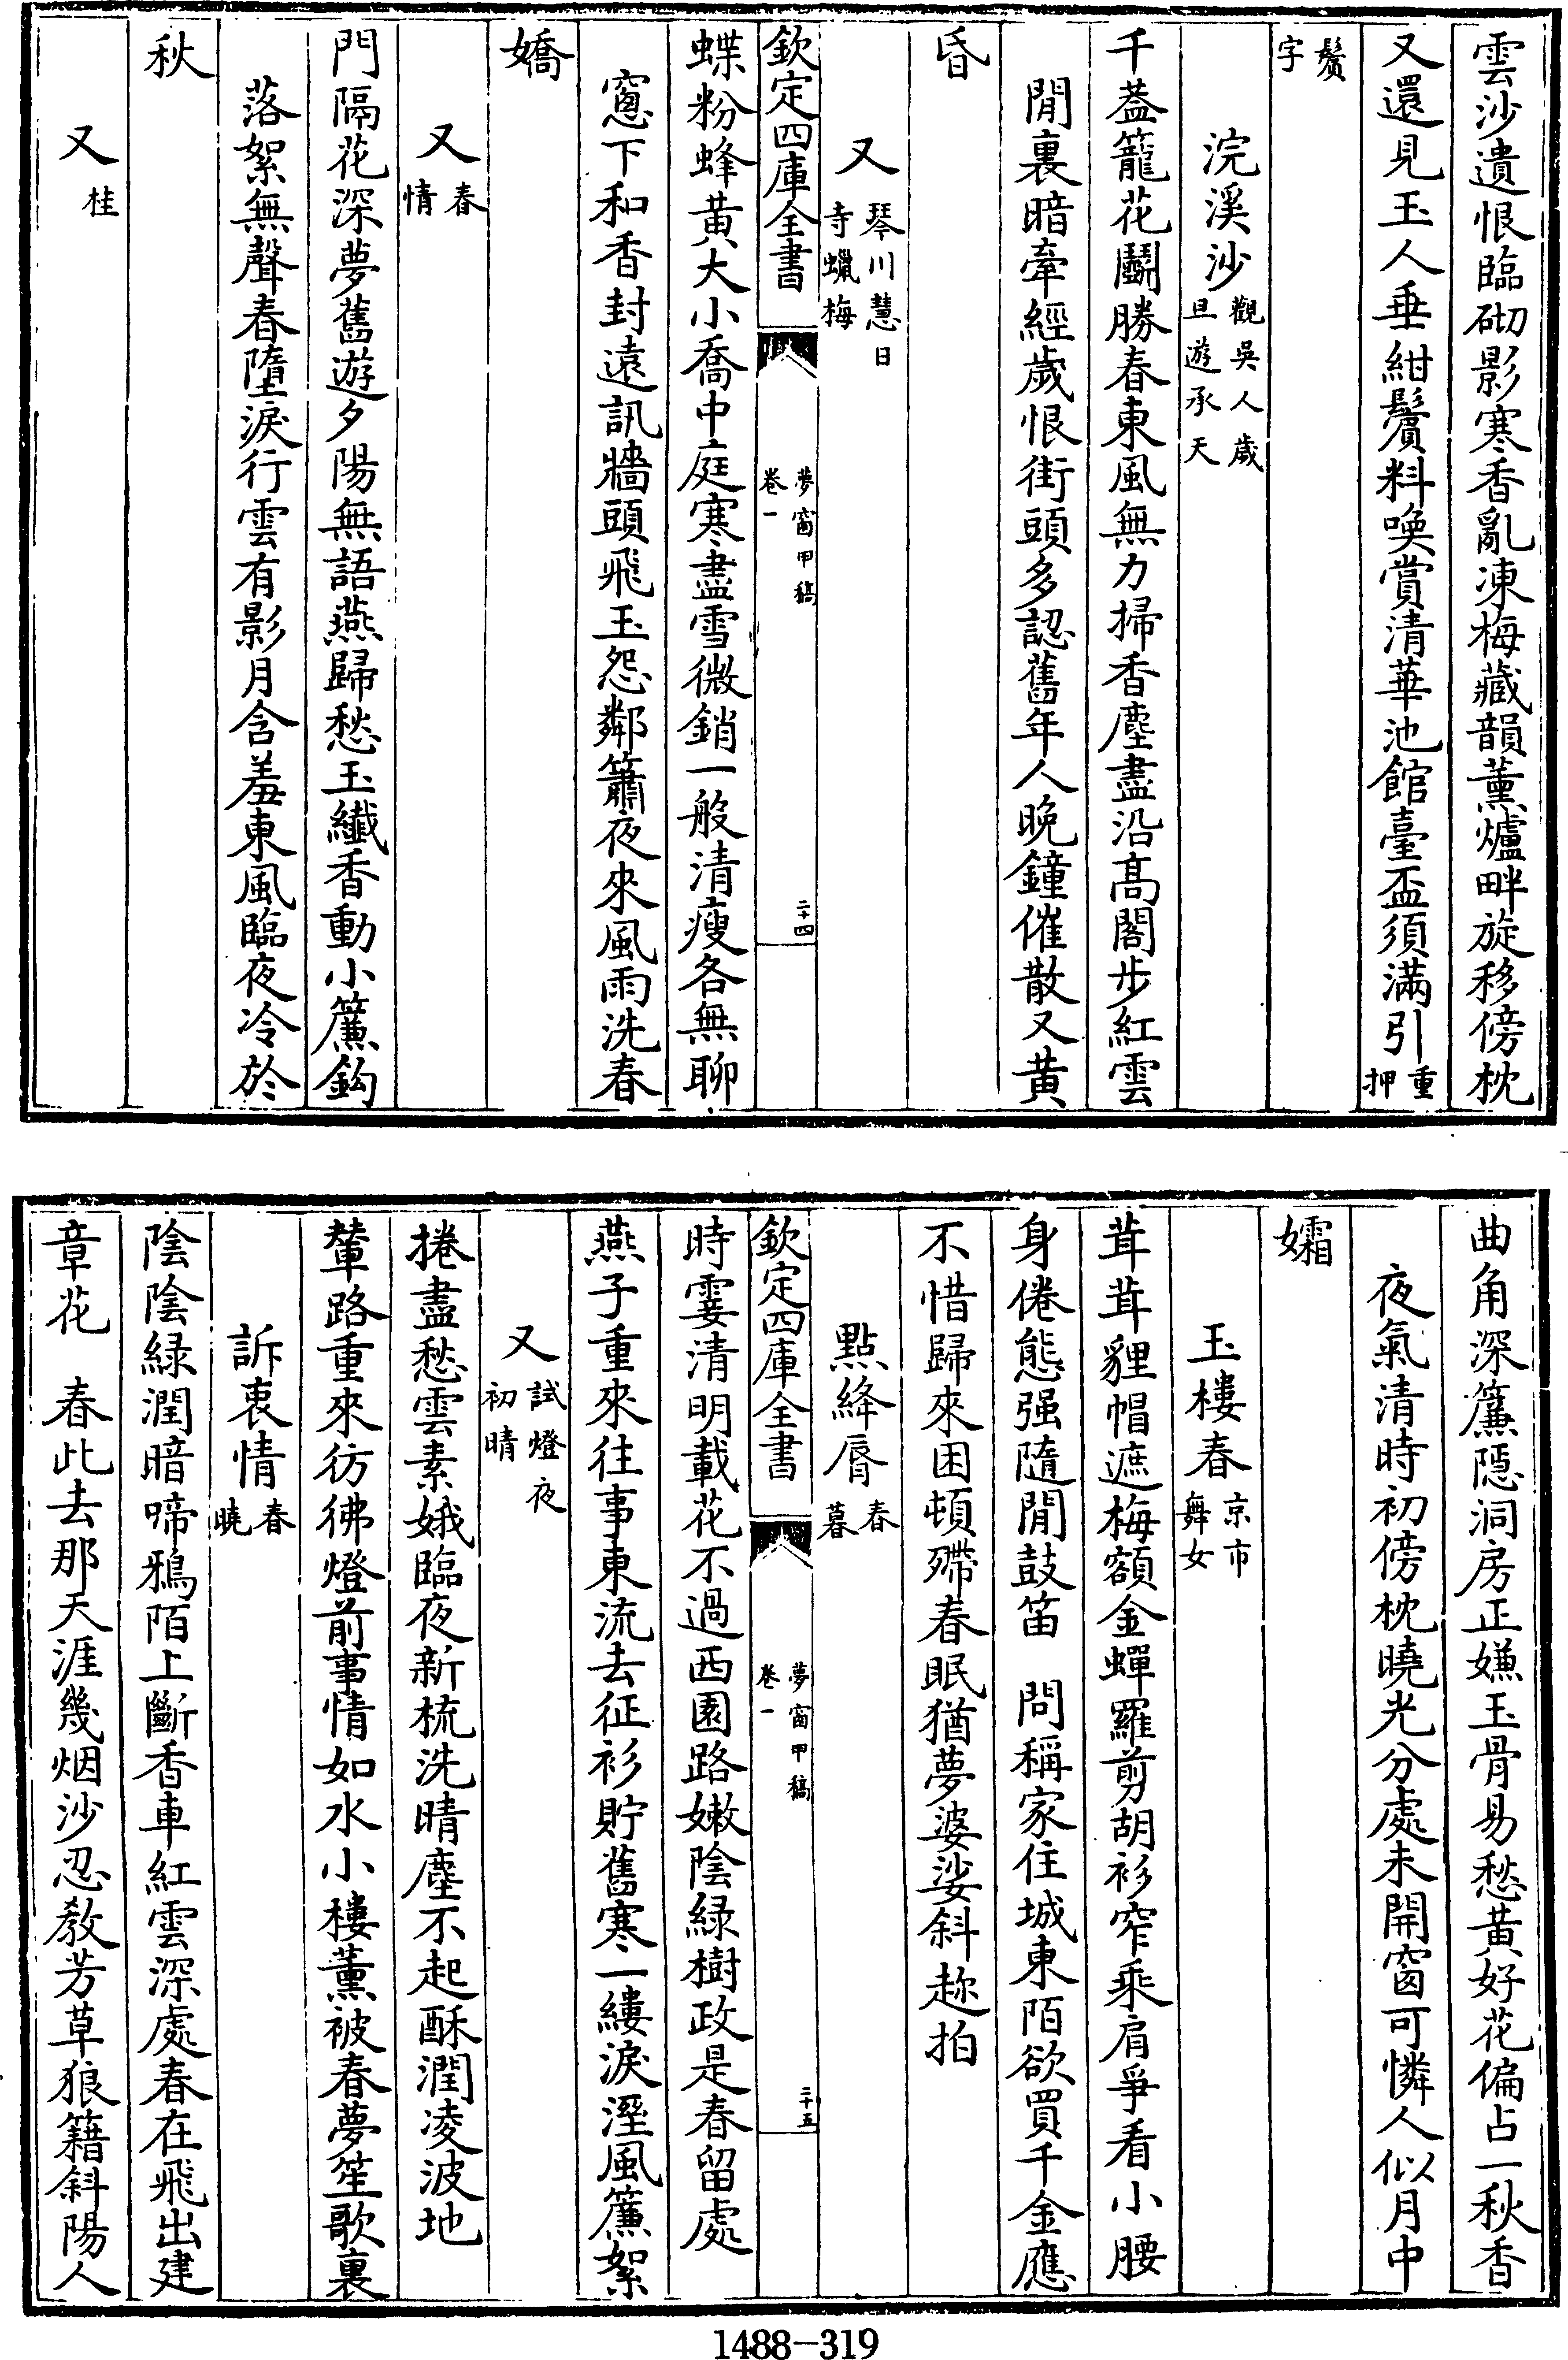 雲沙遺恨臨砌影寒香亂凍梅藏韻薰爐畔旋移傍枕
又還見玉人垂紺鬢料喚賞清華池館臺盃須滿引重押
鬢字
浣溪沙觀吳人歲旦遊承天
千葢籠花鬬勝春東風無力掃香塵盡沿髙閣步紅雲
閒裏暗牽經歲恨街頭多認舊年人晚鐘催散又黄
昏
又琴川慧日寺蠟梅
欽定四庫全書
夢窗甲稿
卷一
二十四
蝶粉蜂黄大小喬中庭寒盡雪微銷一般清瘦各無聊
窻下和香封遠訊牆頭飛玉怨鄰簫夜來風雨洗春
嬌
又春情
門隔花深夢舊遊夕陽無語燕歸愁玉纖香動小簾鈎
落絮無聲春墮淚行雲有影月含羞東風臨夜冷於
秋
又桂
曲角深簾隠洞房正嫌玉骨易愁黄好花偏占一秋香
夜氣清時初傍枕曉光分處未開窗可憐人似月中
孀
玉樓春京市舞女
茸茸貍帽遮梅額金蟬羅剪胡衫窄乘肩爭看小腰
身倦態强隨閒鼓笛　問稱家住城東陌欲買千金應
不惜歸來困頓殢春眠猶夢婆娑斜趂拍
點絳脣春暮
欽定四庫全書
夢窗甲稿
卷一
二十五
時霎清明載花不過西園路嫩陰緑樹政是春留處
燕子重來往事東流去征衫貯舊寒一縷淚溼風簾絮
又試燈夜初晴
捲盡愁雲素娥臨夜新梳洗晴塵不起酥潤凌波地
輦路重來彷彿燈前事情如水小樓薰被春夢笙歌裏
訴衷情春曉
陰陰緑潤暗啼鴉陌上斷香車紅雲深處春在飛出建
章花　春此去那天涯幾烟沙忍敎芳草狼籍斜陽人
1488-319